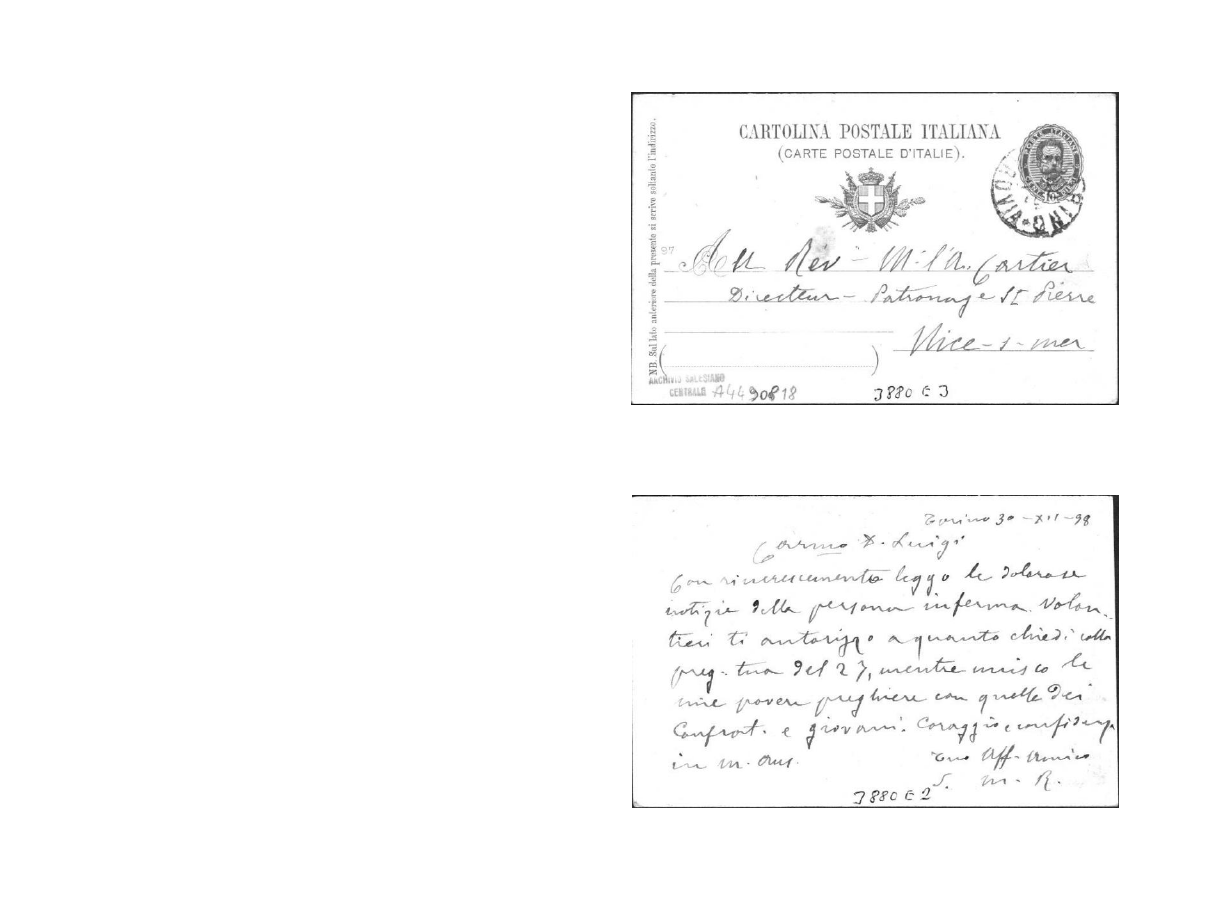 CARTOLINA POSTALE ITALIANA
(CARTE POSTALE D'ITALIE).
NB. Sul lato anteriore della presente si scrive soltanto l'indirizzo.
97
All Rév M. l'A. Cartier
Directeur - Patronage St Pierre
Nice-s-mer
ARCHIVIO SALESIANO
CENTRALE A4490818
3880 E 3
Torino 30-XII-98
Carmo D. Luigi
Con rincrescimento leggo le dolorose
notizie della persona inferma. Volon-
tieri ti autorizzo a quanto chiedi colla
preg. tua del 27, mentre unisco le
mie povere preghiere con quelle dei
Confrat. e giovani. Coraggio e confidenza
in M. Aus.
Tuo Aff. Amico
S. M. R.
3880 E 2